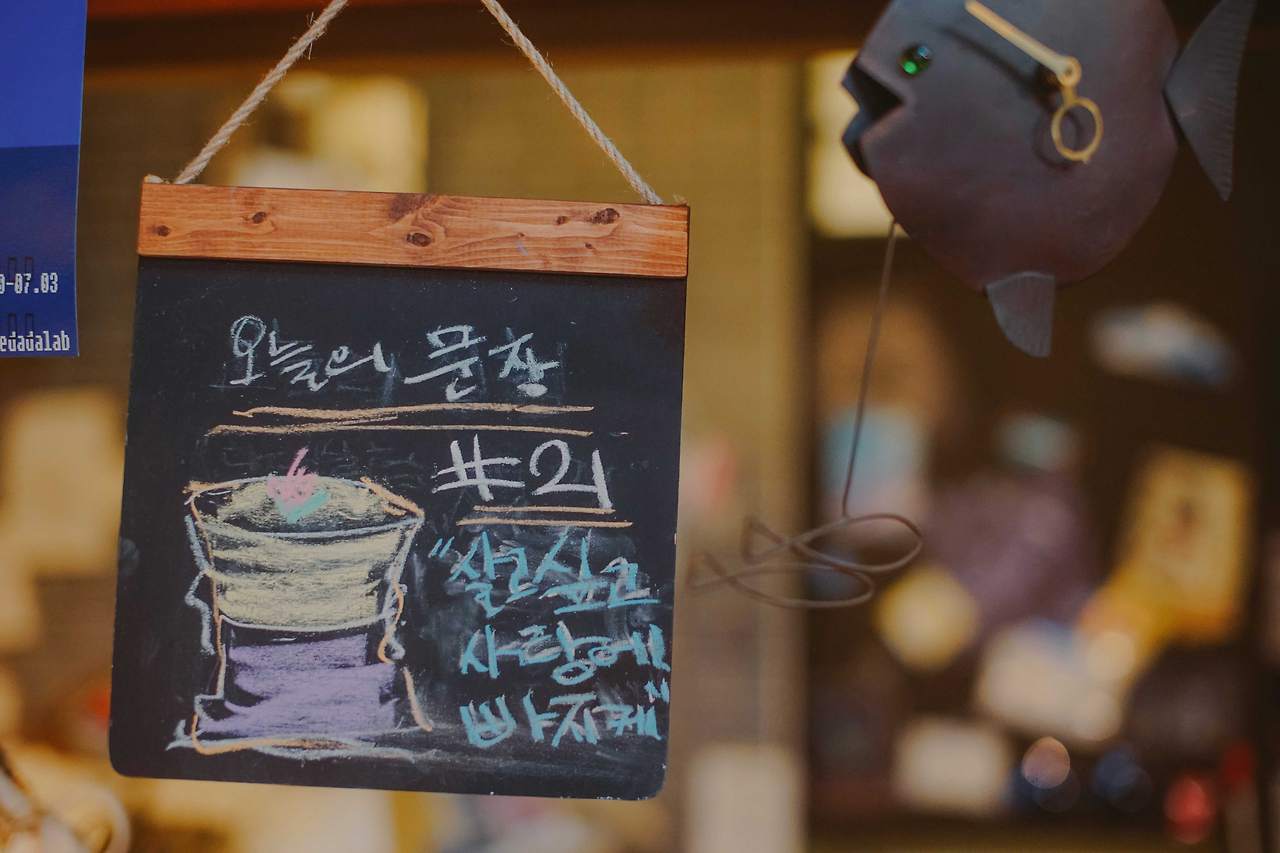 0-07.03
edadalab
오늘의 문장
#21
"살고싶고
사랑에
빠지게"